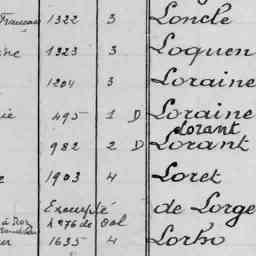 Français 1322 3 Loncle
ine 1323 3 Loquen
1204 3 Loraine
ie 495 1 D Loraine
Lorant
982 2 D Lorant
e 1903 4 Loret
Exempté de Lorge
à Roz 4 976 de Dol
ur 1635 4 Lorho